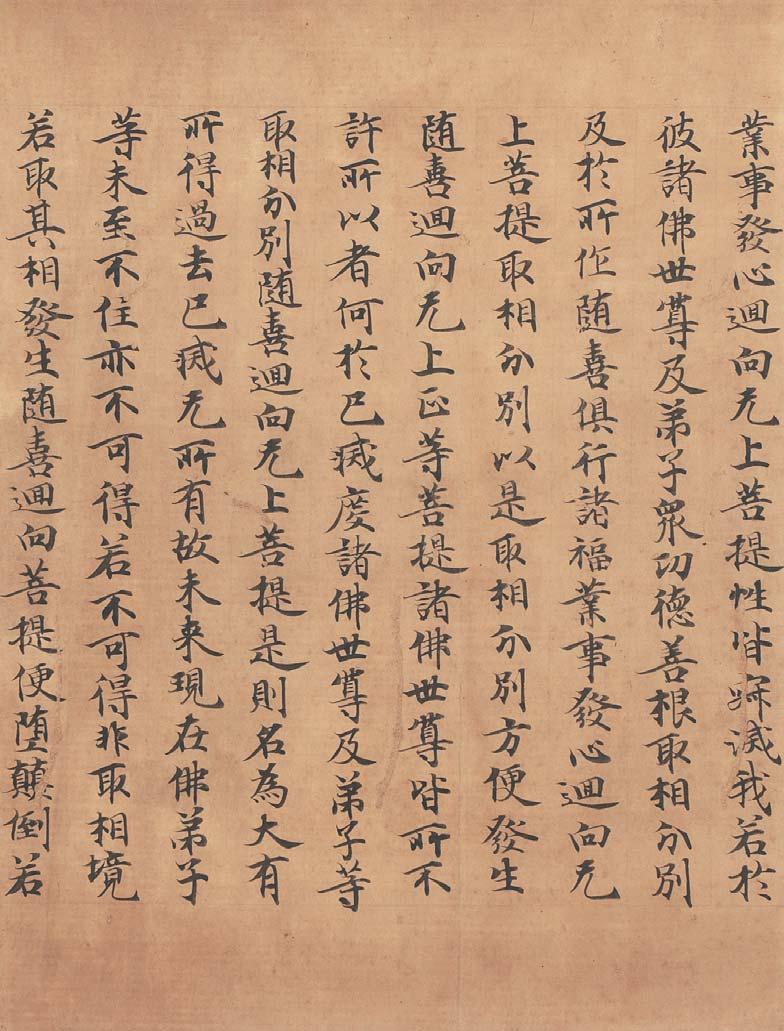 業事發心迴向无上菩提性皆寂滅我若於
彼諸佛世尊及弟子眾功德善根取相分別
及於所作随喜俱行諸福業事發心迴向无
上菩提取相分別以是取相分別方便發生
随喜迴向无上正等菩提諸佛世尊皆所不
許所以者何於已滅度諸佛世尊及弟子等
取相分別随喜迴向无上菩提是則名為大有
所得過去已滅无所有故未来現在佛弟子
等未至不住亦不可得若不可得非取相境
若取其相發生随喜迴向菩提便墮顛倒若